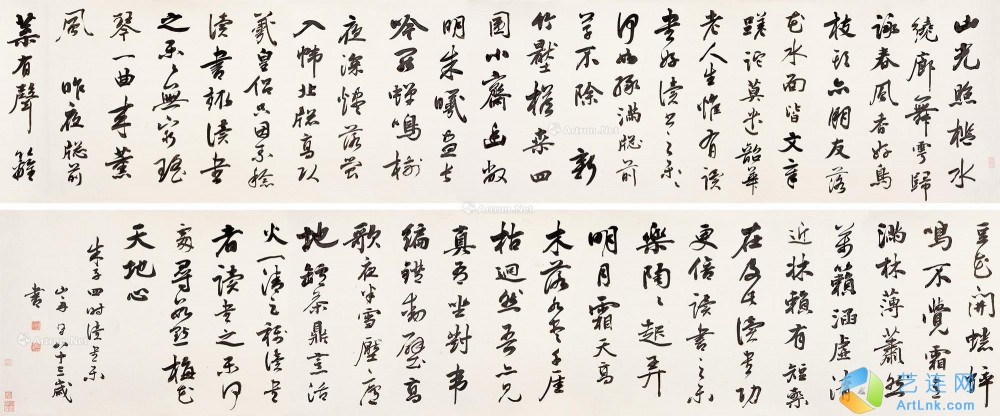 山光照檻水
繞廊舞雩歸
詠春風香好鳥
枝頭亦朋友落
花水面皆文章
蹉跎莫遣韶華
老人生惟有讀
書好讀書之樂〻
何如綠滿牕前
草不除 新
竹壓檐桑四
圍小齋幽敞
明朱曦晝長
吟罷蟬鳴樹
夜深燼落螢
入幃北牕高臥
羲皇侶只因素稔
讀書趣讀書
之樂〻無窮瑤
琴一曲来薰
風 昨夜牕前
葉有聲 籬
豆花開蟋蟀
鳴不覺霜意
滿林薄蕭然
萬籟涵虛清
近牀賴有短檠
在及此讀書功
更倍讀書之樂
樂陶〻起弄
明月霜天高
木落水盡千崖
枯迥然吾亦見
真吾坐對韋
編燈動壁高
歌夜半雪壓廬
地爐茶鼎烹活
火一清足稱讀書
者讀書之樂何
處尋数點梅花
天地心
朱子四時讀書樂
山舟 八十三歲
書
Artron.Net
Artron.Net
艺连网
ArtLnk.com